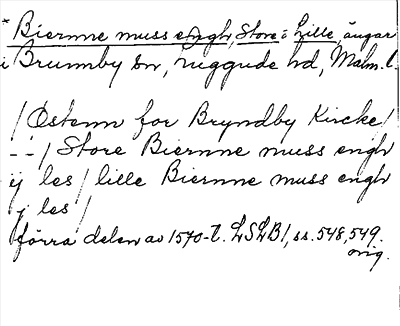 * Biernne muss engh, Store = Lille, ängar
i Brunnby sn, Luggude hd, Malm. l.
/ Østenn for Bryndby Kircke /
-:- / Store Biernne muss engh
ij les / lille Biernne muss engh
j les /
förra delen av 1570-t. LSLB1, ss. 548, 549.
orig.